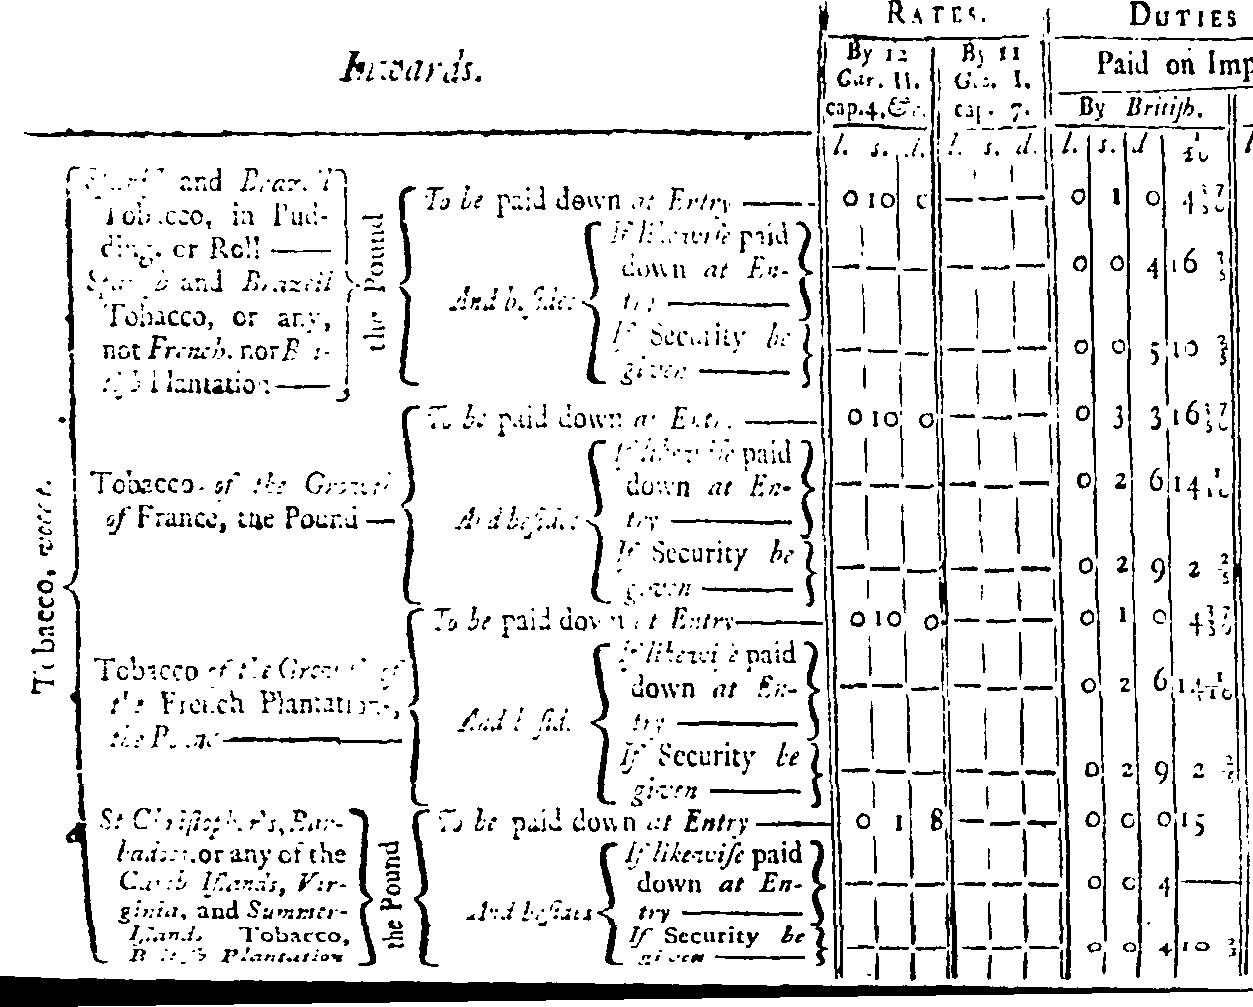 Inwards.
RATES.
DUTIES
By 12
Car. II.
cap. 4, &c.
By 11
Geo. I.
cap. 7.
Paid on Imp
By Britiſh.
l. s. d. l. s. d. l. s. d 1/20
Tobacco, vocet.
and Brazil
Tobacco, in Pud-
ding, or Roll —
Spaniſh and Brazeil
Tobacco, or any,
not French, nor Bri-
tiſh Plantation —
the Pound
To be paid down at Entry — 0 10 0 — — — 0 1 0 4
And beſides
If likewiſe paid
down at En- — — — — — — 0 0 4 16
try —
If Security be
given — — — — — — — 0 0 5 10
Tobacco of the Growth
of France, the Pound —
To be paid down at Entry — 0 10 0 — — — 0 3 3 16
And beſides
If likewiſe paid
down at En- — — — — — — 0 2 6 14
try —
If Security be
given — — — — — — — 0 2 9 2
Tobacco of the Growth of
the French Plantations,
the Pound —
To be paid down at Entry — 0 10 0 — — — 0 1 0 4
And beſides
If likewiſe paid
down at En- — — — — — — 0 2 6 14
try —
If Security be
given — — — — — — — 0 2 9 2
St Chriſtopher's, Bar-
badoes, or any of the
Carib Iſlands, Vir-
ginia, and Summer-
Iſlands Tobacco,
Britiſh Plantation
the Pound
To be paid down at Entry — 0 1 8 — — — 0 0 0 15
And beſides
If likewiſe paid
down at En- — — — — — — 0 0 4 —
try —
If Security be
given — — — — — — — 0 0 4 10